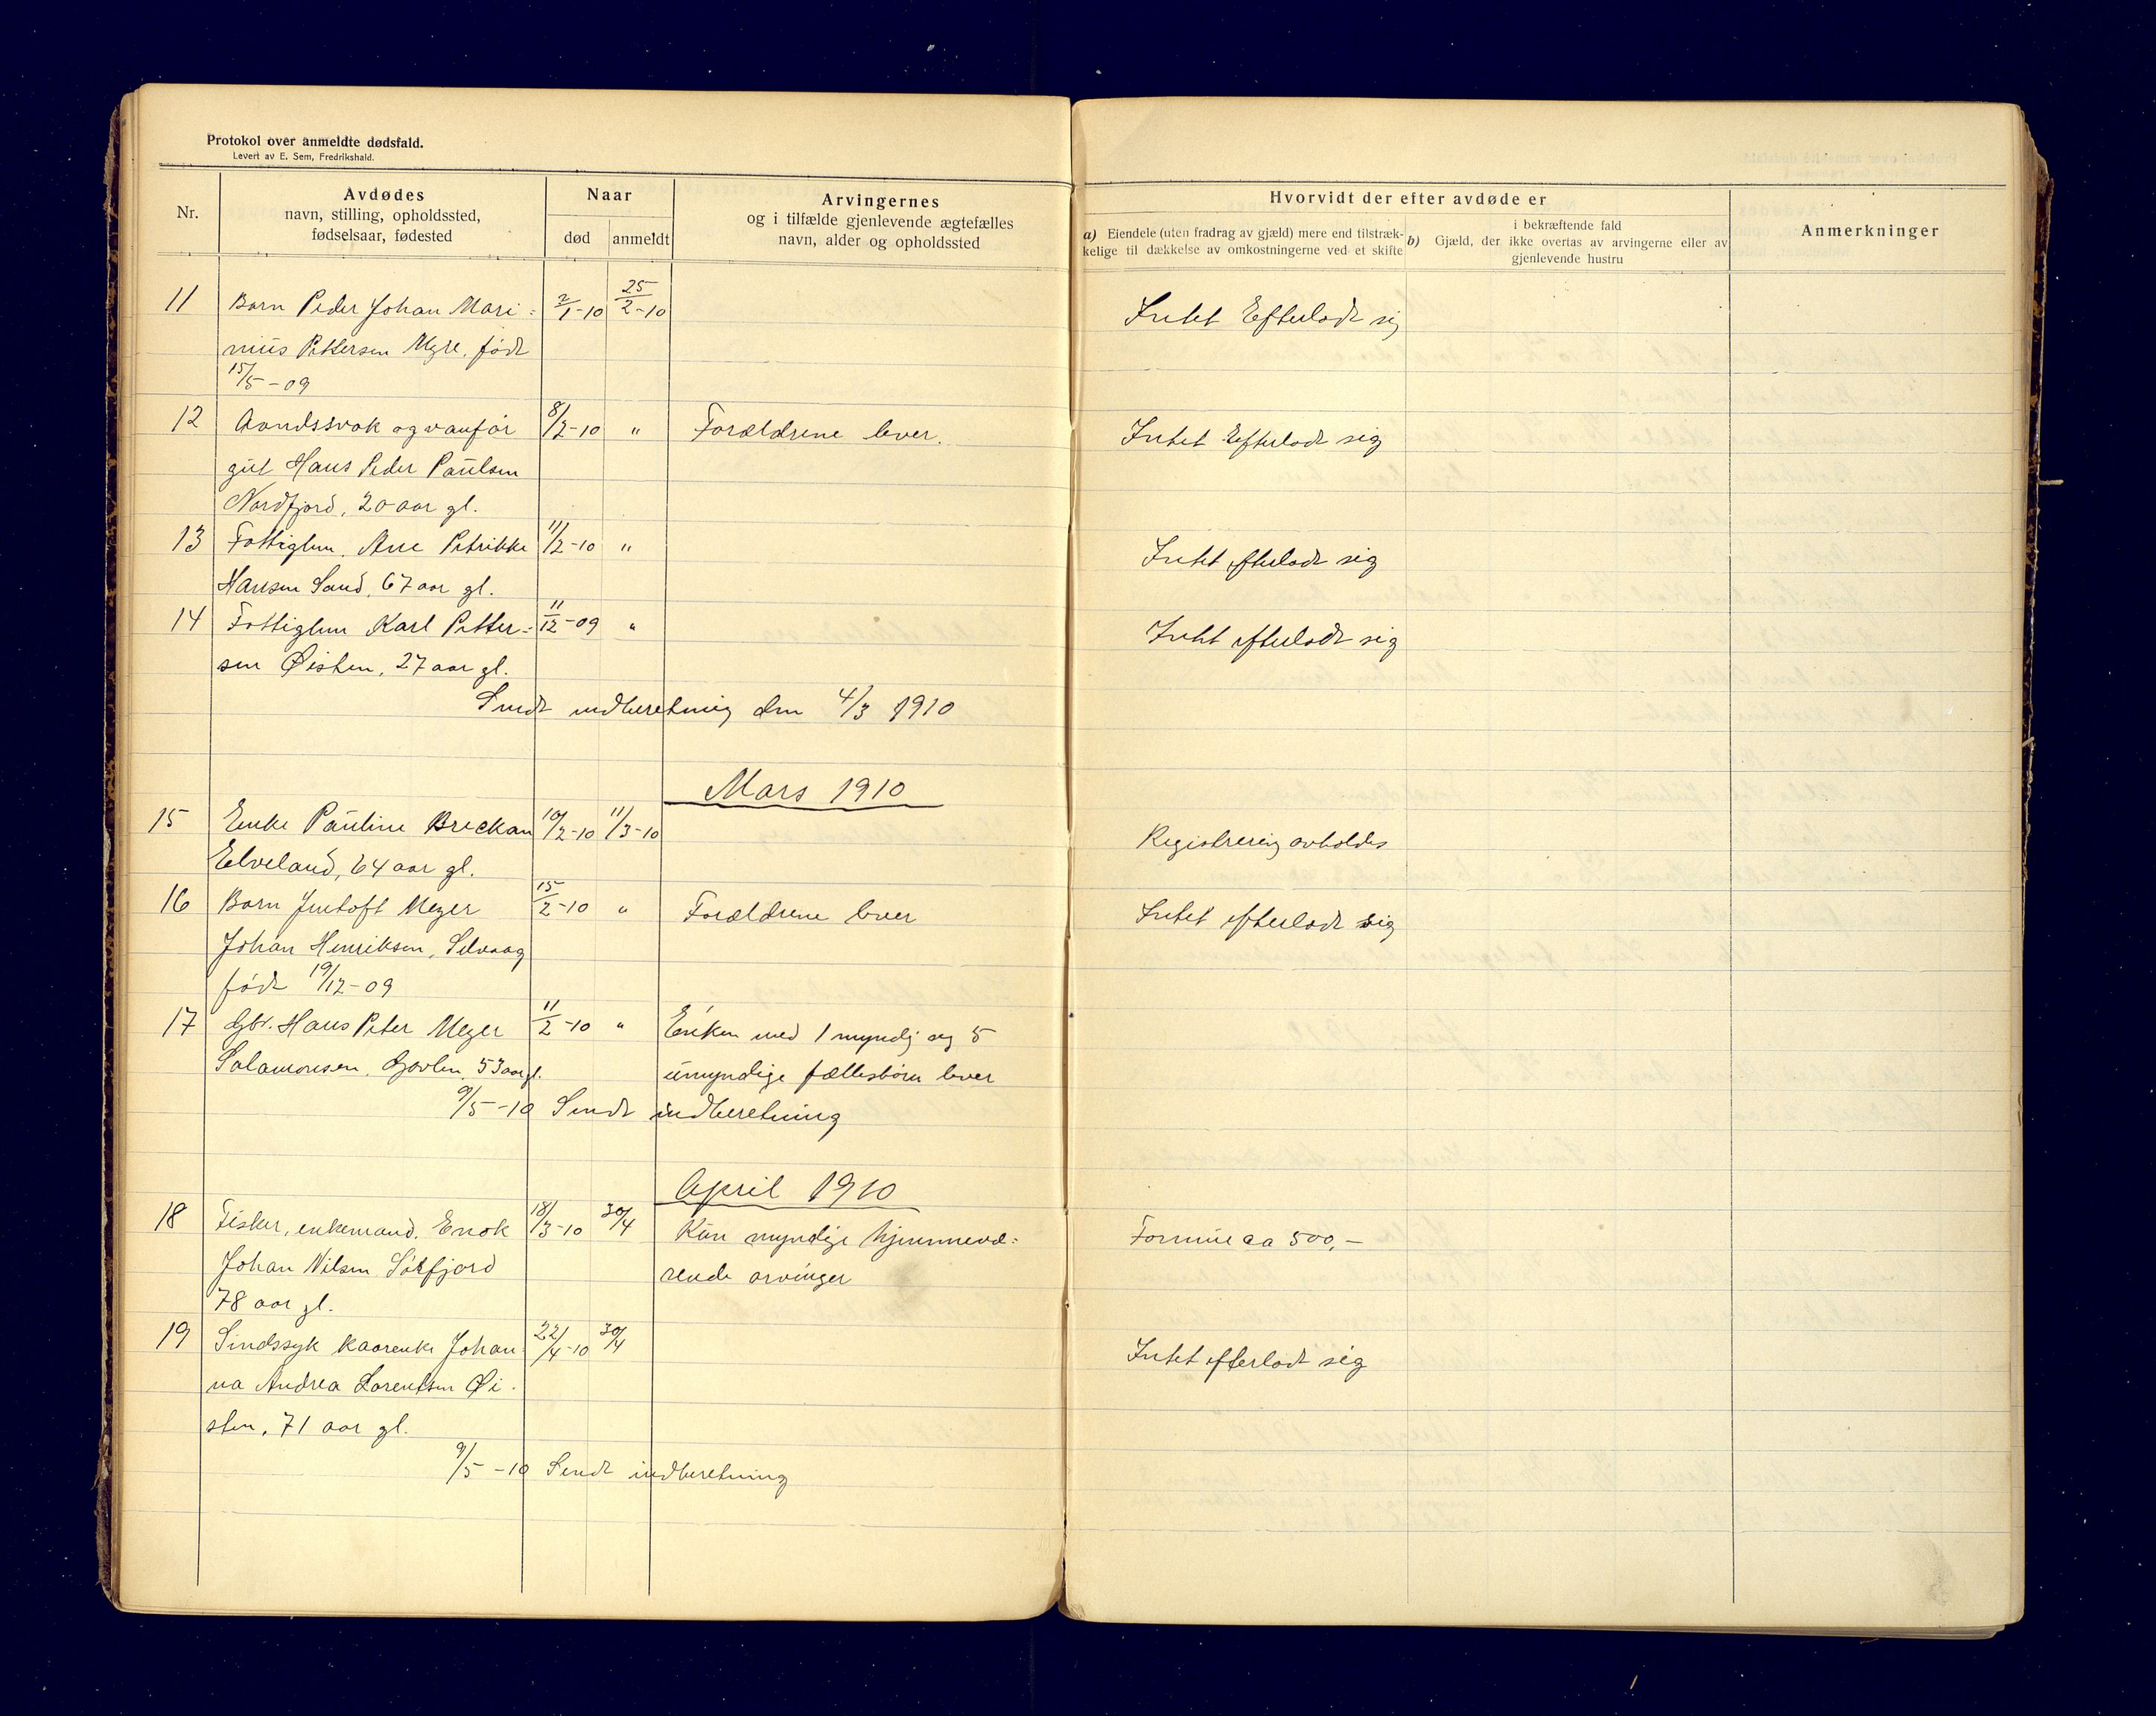 Protokol over anmeldte dødsfald.
Levert av E. Sem, Fredrikshald.
Nr.
Avdødes
navn, stilling, opholdssted,
fødselsaar, fødested
Naar
død
anmeldt
Arvingernes
og i tilfælde gjenlevende ægtefælles
navn, alder og opholdssted
Hvorvidt der efter avdøde er
a) Eiendele (uten fradrag av gjæld) mere end tilstræk-
kelige til dækkelse av omkostningerne ved et skifte
b) i bekræftende fald
Gjæld, der ikke overtas av arvingerne eller av
gjenlevende hustru
Anmerkninger
11 Barn Peder Johan Mari= 2/1-10 25/2-10 Intet Efterlodt sig
nius Pettersen Myre, født
15/5-09
12 Aandssvak og vanfør 8/2-10 " Forældrene lever. Intet Efterlodt sig
gut Hans Peder Paulsen
Nordfjord, 20 aar gl.
13 Fattiglem. Ane Petrikke 11/2-10 " Intet efterlodt sig
Hansen Sand, 67 aar gl.
14 Fattiglem Karl Petter= 11/12-09 " Intet efterlodt sig
sen Øisten, 27 aar gl.
Sendt indberetning den 4/3 1910
Mars 1910
15 Enke Pauline Breckan 10/2-10 11/3-10 Registrering avholdes
Elveland, 64 aar gl.
16 Barn Jentoft Meyer 15/2-10 " Forældrene lever Intet efterlodt sig
Johan Henriksen, Selvaag
født 19/12-09
17 Gbr. Hans Peter Meyer 11/2-10 " Enken med 1 myndig og 5
Salamonsen, 53 aar gl. umyndige fællesbørn lever
9/5-10 Sendt indberetning
April 1910
18 Fisker, enkemand, Enok 18/3-10 30/4 Kun myndige hjemmevæ= Formue ca 500,-
Johan Nilsen Sørfjord rende arvinger
78 aar gl.
19 Sindssyk kaarenke Johan= 22/4-10 30/4 Intet efterlodt sig
na Andrea Lorentsen Øi-
sten, 71 aar gl.
9/5-10 Sendt indberetning